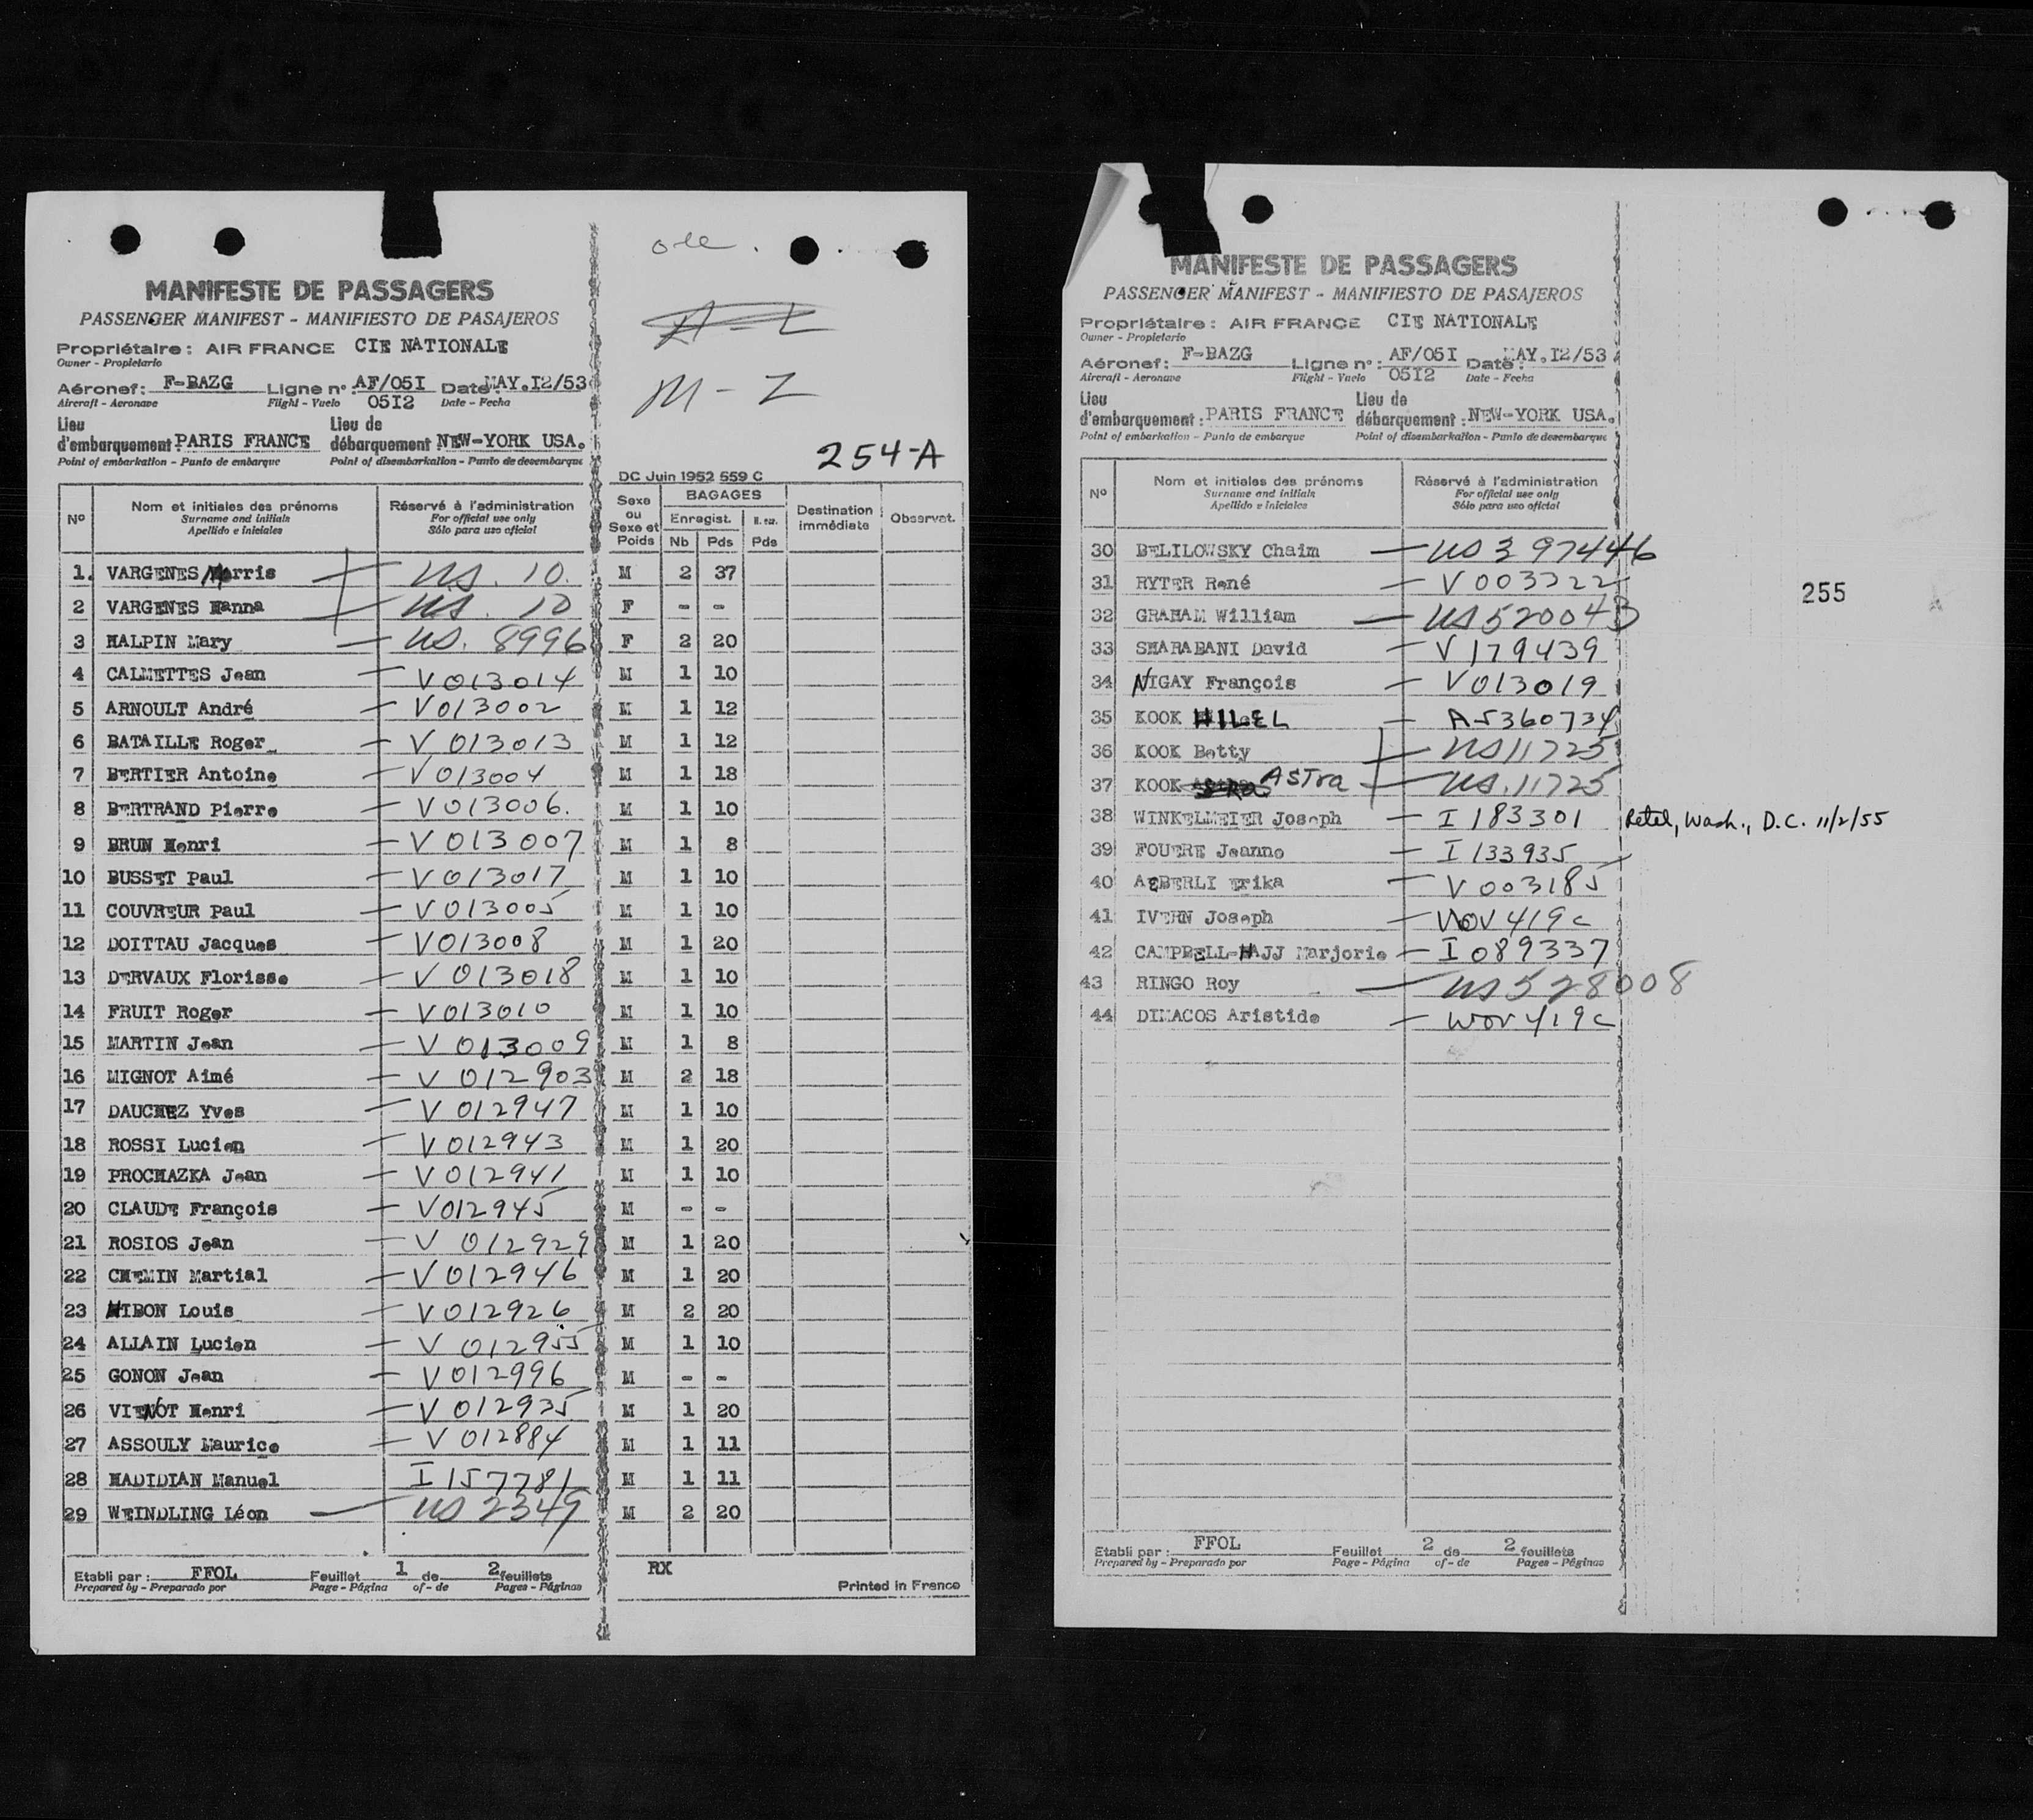 MANIFESTE DE PASSAGERS
PASSENGER MANIFEST - MANIFIESTO DE PASAJEROS
Propriétaire : AIR FRANCE CIE NATIONALE
Owner - Propietario
Aéronef : F-BAZG Ligne n° : AF/05I Date MAY.I2/53
Aircraft - Aeronave Flight - Vuelo 05I2 Date - Fecha
Lieu Lieu de
d'embarquement PARIS FRANCE débarquement NEW-YORK USA.
Point of embarkation - Punto de embarque Point of disembarkation - Punto de desembarque
A-L
M-Z
254-A
DC Juin 1952 559 C
N° Nom et initiales des prénoms Réservé à l'administration Sexe ou Sexe et Poids BAGAGES Destination immédiate Observat.
Surname and initials For official use only Enregist.
Apellido e iniciales Sólo para uso oficial Nb Pds Pds
1. VARGENES Morris — US. 10. M 2 37
2 VARGENES Hanna — US. 10 F - -
3 HALPIN Mary — US. 8996 F 2 20
4 CALMETTES Jean — V 013014 M 1 10
5 ARNOULT André — V 013002 M 1 12
6 BATAILLE Roger — V 013013 M 1 12
7 BERTIER Antoine — V 013004 M 1 18
8 BERTRAND Pierre — V 013006. M 1 10
9 BRUN Henri — V 013007 M 1 8
10 BUSSET Paul — V 013017 M 1 10
11 COUVREUR Paul — V 013005 M 1 10
12 DOITTAU Jacques — V 013008 M 1 20
13 DERVAUX Florisse — V 013018 M 1 10
14 FRUIT Roger — V 013010 M 1 10
15 MARTIN Jean — V 013009 M 1 8
16 MIGNOT Aimé — V 012903 M 2 18
17 DAUCHEZ Yves — V 012947 M 1 10
18 ROSSI Lucien — V 012943 M 1 20
19 PROCHAZKA Jean — V 012941 M 1 10
20 CLAUDE François — V 012945 M - -
21 ROSIOS Jean — V 012929 M 1 20
22 CHEMIN Martial — V 012946 M 1 20
23 HIBON Louis — V 012926 M 2 20
24 ALLAIN Lucien — V 012955 M 1 10
25 GONON Jean — V 012996 M - -
26 VIENOT Henri — V 012935 M 1 20
27 ASSOULY Maurice — V 012884 M 1 11
28 HADIDIAN Manuel I 157781 M 1 11
29 WEINDLING Léon — US 2349 M 2 20
Etabli par : FFOL Feuillet 1 de 2 feuillets RX
Prepared by - Preparado por Page - Página of - de Pages - Páginas Printed in France
MANIFESTE DE PASSAGERS
PASSENGER MANIFEST - MANIFIESTO DE PASAJEROS
Propriétaire : AIR FRANCE CIE NATIONALE
Owner - Propietario
Aéronef : F-BAZG Ligne n° : AF/05I Date : MAY.I2/53
Aircraft - Aeronave Flight - Vuelo 05I2 Date - Fecha
Lieu Lieu de
d'embarquement : PARIS FRANCE débarquement : NEW-YORK USA.
Point of embarkation - Punto de embarque Point of disembarkation - Punto de desembarque
N° Nom et initiales des prénoms Réservé à l'administration
Surname and initials For official use only
Apellido e iniciales Sólo para uso oficial
30 BELILOWSKY Chaim — US 397446
31 RYTER René — V 003222
255
32 GRAHAM William — US 520043
33 SHARABANI David — V 179439
34 NIGAY François — V 013019
35 KOOK HILEL — A5360734
36 KOOK Betty — US 11725
37 KOOK ASTra — US. 11725
38 WINKELMEIER Joseph — I 183301 Retel, Wash., D.C. 11/2/55
39 FOUERE Jeanne — I 133935
40 AEBERLI Erika — V 003185
41 IVERN Joseph — WOV 419c
42 CAMPBELL-HAJJ Marjorie — I 089337
43 RINGO Roy — US 528008
44 DIMACOS Aristide — WOV 419c
Etabli par : FFOL Feuillet 2 de 2 feuillets
Prepared by - Preparado por Page - Página of - de Pages - Páginas